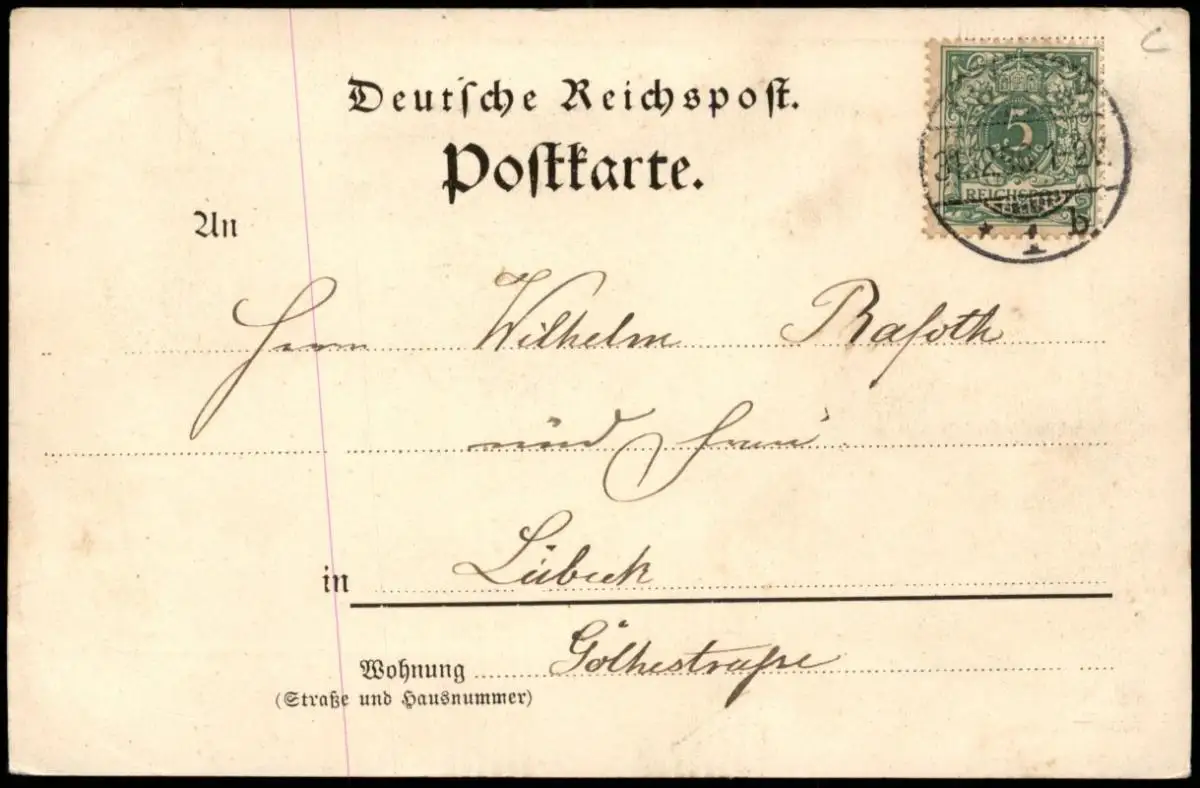 Deutsche Reichspost.
Postkarte.
5
REICHSPOST
1-2N.
* 1 b.
An
Herrn Wilhelm Rasoth
und Frau
in Lübeck
Wohnung Göthestraße
(Straße und Hausnummer)